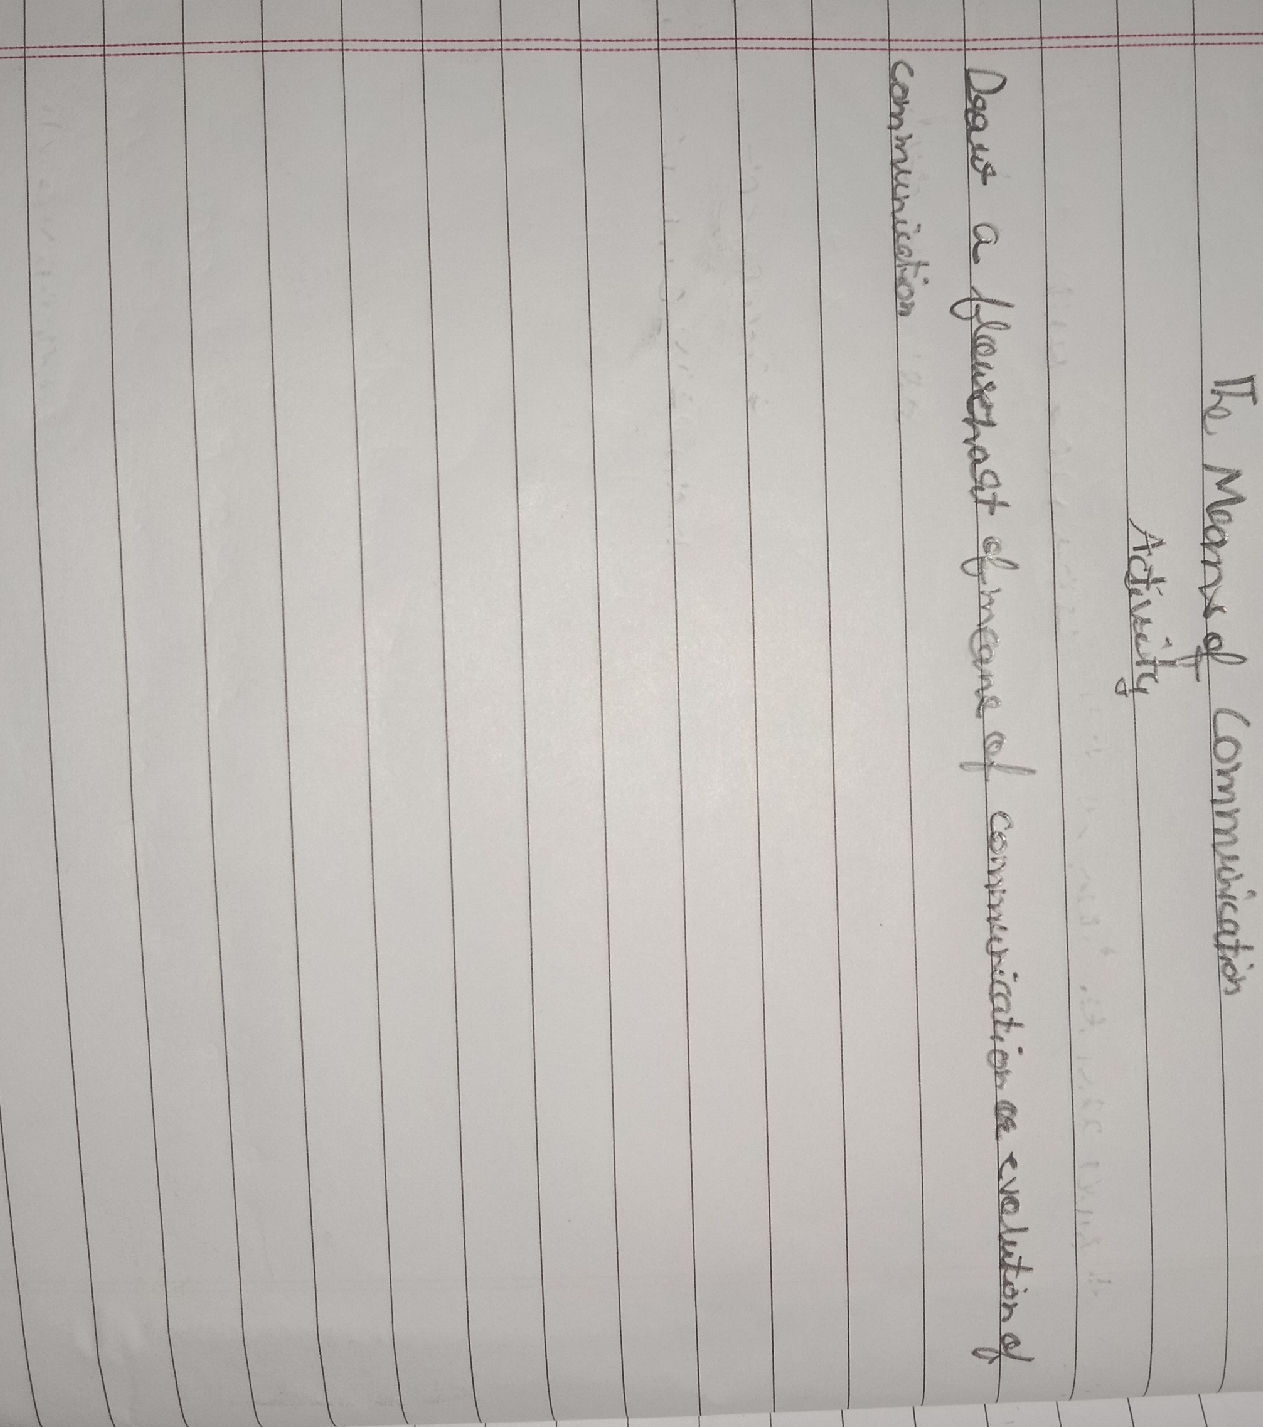 The Means of Communication
Activity
Draw a flowchart of means of communication or evolution of
communication